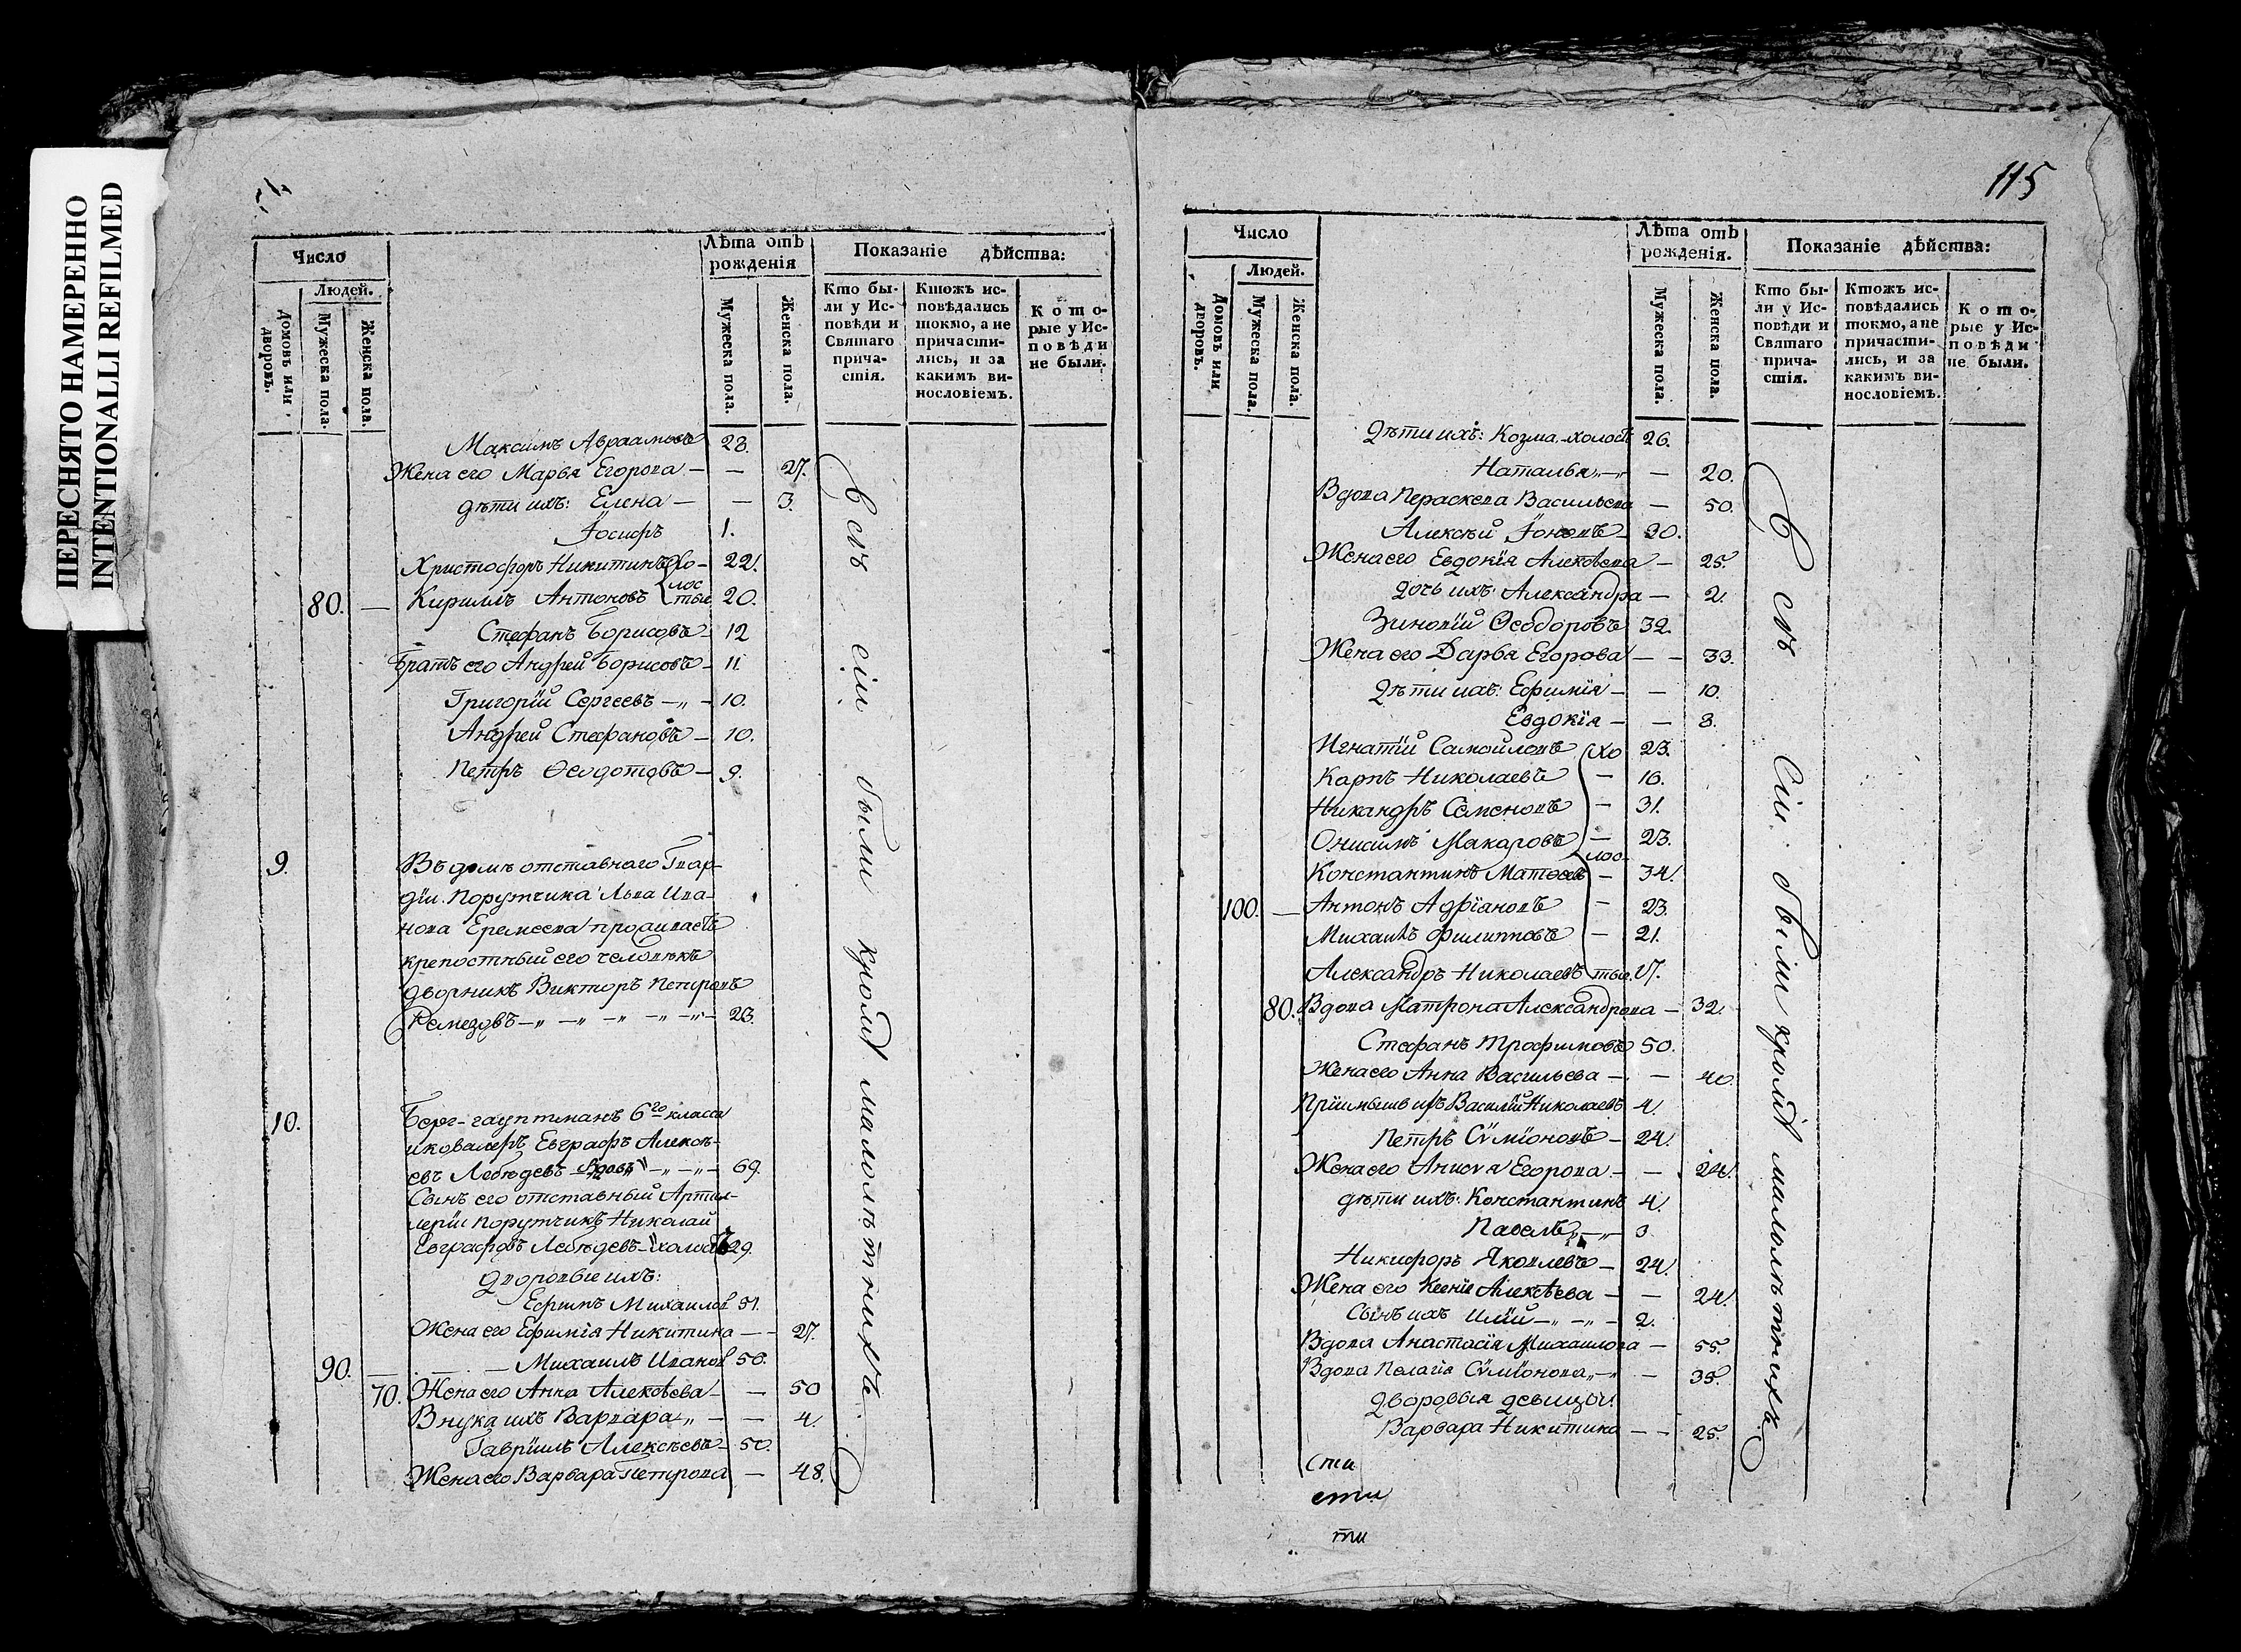 ПЕРЕСНЯТО НАМЕРЕННО
INTENTIONALLI REFILMED
Число
Людей.
Домовъ или дворовъ.
Мужеска пола.
Женска пола.
Лѣта отъ рожденія
Мужеска пола.
Женска пола.
Показаніе дѣйства:
Кто бы-
ли у Ис-
повѣди и
Святаго
прича-
стія.
Ктожъ ис-
повѣдались
токмо, а не
причасти-
лись, и за
какимъ ви-
нословіемъ.
Кото-
рые у Ис-
повѣди
не были.
Максимъ Авраамовъ 28.
Жена его Марья Егорова — — 27.
дѣти ихъ: Елена — — 3.
Іосифъ 1.
Христофоръ Никитинъ хо- 22.
80. — Кириллъ Антоновъ лос тые 20.
Стефанъ Борисовъ 12
Братъ его Андрей Борисовъ — 11
Григорій Сергеевъ — „ — 10.
Андрей Стефановъ — 10.
Петръ Ѳедотовъ — 9.
9. Въ домѣ отставнаго Гвар-
діи Порутчика Льва Ива-
нова Еремеева проживаетъ
крепостный его человѣкъ
дворникъ Викторъ Петровъ
Ремезовъ — „ — „ — „ — „ — „ — 23.
10. Берг-гауптманъ 6го класса
и ковалеръ Евграфъ Алексѣ-
евъ Лебѣдевъ вдовъ — „ — „ — 69.
Сынъ его отставный Артил-
леріи Порутчикъ Николай
Евграфовъ Лебѣдевъ — холостъ 29.
Дворовые ихъ:
Ефимъ Михаилов 51.
Жена его Ефимія Никитина — — 27.
90. — — Михаилъ Иванов 50.
70. Жена его Анна Алексѣева — — 50
Внука ихъ Варвара „ — — 4.
Гавріилъ Алексѣевъ — 50.
Жена его Варвара Петрова — 48.
Всѣ сіи были кромѣ малолѣтнихъ.
115
Число
Людей.
Домовъ или дворовъ.
Мужеска пола.
Женска пола.
Лѣта отъ рожденія.
Мужеска пола.
Женска пола.
Показаніе дѣйства:
Кто бы-
ли у Ис-
повѣди и
Святаго
прича-
стія.
Ктожъ ис-
повѣдались
токмо, а не
причасти-
лись, и за
какимъ ви-
нословіемъ.
Кото-
рые у Ис-
повѣди
не были.
Дѣти ихъ: Козма, холостъ 26.
Наталья „ — „ — 20.
Вдова Пераскева Васильева — 50.
Алексѣй Іоновъ 30.
Жена его Евдокія Алексѣева — 25.
дочь ихъ: Александра — 2.
Зиновій Ѳеодоровъ 32.
Жена его Дарья Егорова — — 33.
Дѣти ихъ: Ефимія — — 10.
Евдокія — — 8.
Игнатій Самойловъ хо 23.
Карпъ Николаевъ — 16.
Никандръ Семеновъ — 31.
Онисимъ Макаровъ — 23.
лос
Константинъ Матвеев — 34.
100. — Антонъ Адріановъ — 23.
Михаилъ Филипповъ — 21.
Александръ Николаевъ тые. 17.
80. Вдова Матрона Александрова — 32.
Стефанъ Трофимовъ 50.
Жена его Анна Васильева — — 40
Пріимышъ ихъ Василій Николаевъ 4.
Петръ Сѵміоновъ — 24.
Жена его Анисія Егорова — — 24.
дѣти ихъ: Константинъ 4.
Павелъ „ — „ 3.
Никифоръ Яковлевъ — 24.
Жена его Ксенія Алексѣева — — 24.
Сынъ ихъ Илій — „ — „ — 2.
Вдова Анастасія Михаилова — 55.
Вдова Пелагія Сѵміонова „ — „ — 35.
Дворовыя девицы:
Варвара Никитина — — 25.
сти
сти
ти
Всѣ сіи были кромѣ малолѣтнихъ